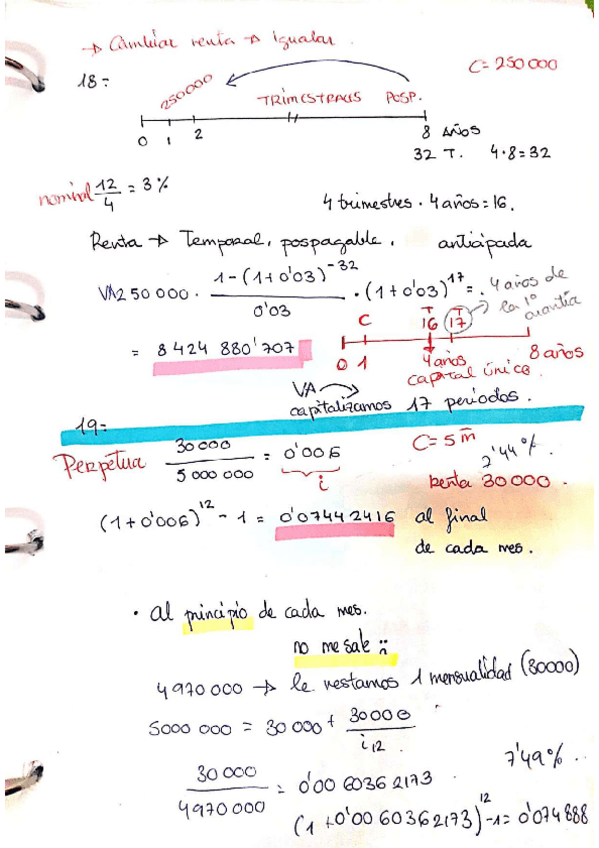 → Cambiar renta → igualar.
18=
C = 250 000
250 000
TRIMESTRALES POSP.
0 1 2 8 AÑOS
32 T. 4·8=32
nominal 12/4 = 3%
4 trimestres · 4 años = 16.
Renta → Temporal, pospagable, anticipada
VA 250 000 · (1-(1+0'03)^-32)/0'03 · (1+0'03)^17 = .
4 años de la 1ª cuantía
= 8 424 880'707
C T 16 T 17
0 1 4 años 8 años
capital único
VA
capitalizamos 17 periodos.
19=
Perpetua 30 000/5 000 000 = 0'006
i
C = 5 m
2'44%
Renta 30 000.
(1+0'006)^12 - 1 = 0'07442416 al final
de cada mes.
· al principio de cada mes.
no me sale :(
4 970 000 → le restamos 1 mensualidad (30000)
5000 000 = 30 000 + 30000/i12.
30 000/4970 000 = 0'00 6036 2173
7'49% .
(1+0'00 60362173)^12 -1 = 0'074888